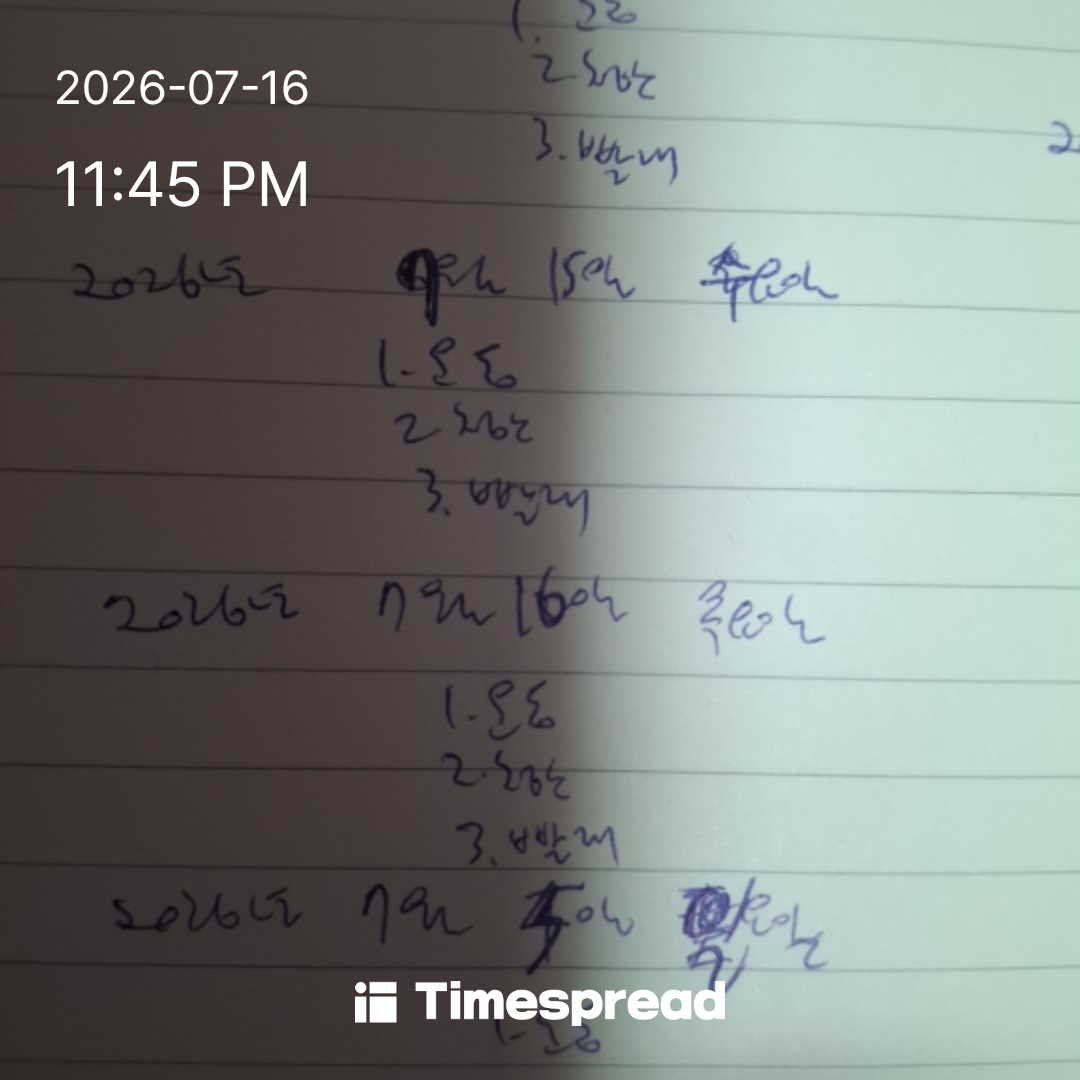 1. 운동
2. 청소
2026-07-16
3. 빨래
11:45 PM
2026년 7월 15일 수요일
1. 운동
2. 청소
3. 빨래
2026년 7월 16일 목요일
1. 운동
2. 청소
3. 빨래
2026년 7월 일 요일
Timespread
1. 운동